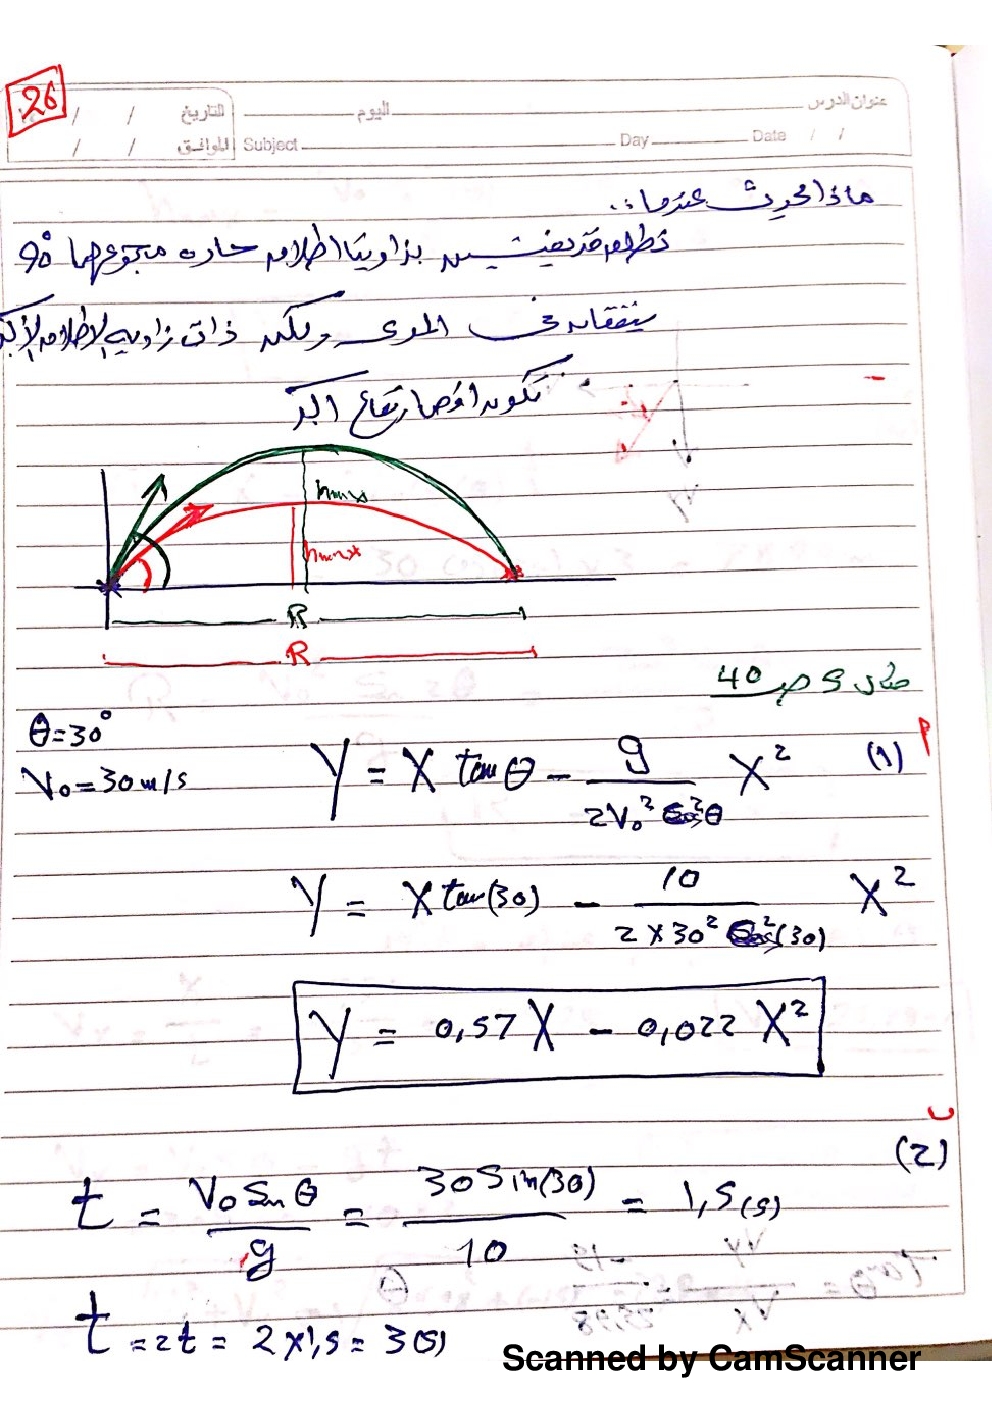 26
عنوان الدرس اليوم التاريخ / /
Subject Day Date / / الموافق / /
ماذا يحدث عندما :.
تطلق قذيفتين بزاويتا اطلاق حاده مجموعهما 90°
يتفقان في المدى ولكن ذات زاويه الاطلاق الأكبر
تكون اقصا ارتفاع اكبر
hmax
hmax
R
R
مثال 5 ص 40
θ=30°
V₀=30m/s
(1) أ
Y = X tanθ - g/(2V₀² cos²θ) X²
Y = X tan(30) - 10/(2×30² cos²(30)) X²
Y = 0,57X - 0,022X²
(2) ب
t = V₀ Sinθ/g = 30Sin(30)/10 = 1,5(s)
t = 2t = 2×1,5 = 3(s)
Scanned by CamScanner